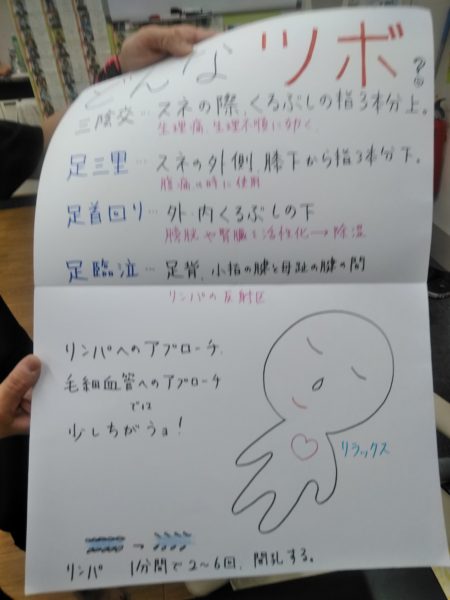 どんなツボ?
三陰交…スネの際、くるぶしの指3本分上。
生理痛、生理不順に効く
足三里…スネの外側、膝下から指3本分下。
腹痛の時に使用
足首回り…外・内くるぶしの下
膀胱や腎臓を活性化→除湿
足臨泣…足背、小指の腱と母趾の腱の間
リンパの反射区
リンパへのアプローチ、
毛細血管へのアプローチ
では
少しちがうョ!
リラックス
→
リンパ 1分間で2〜6回、開孔する。